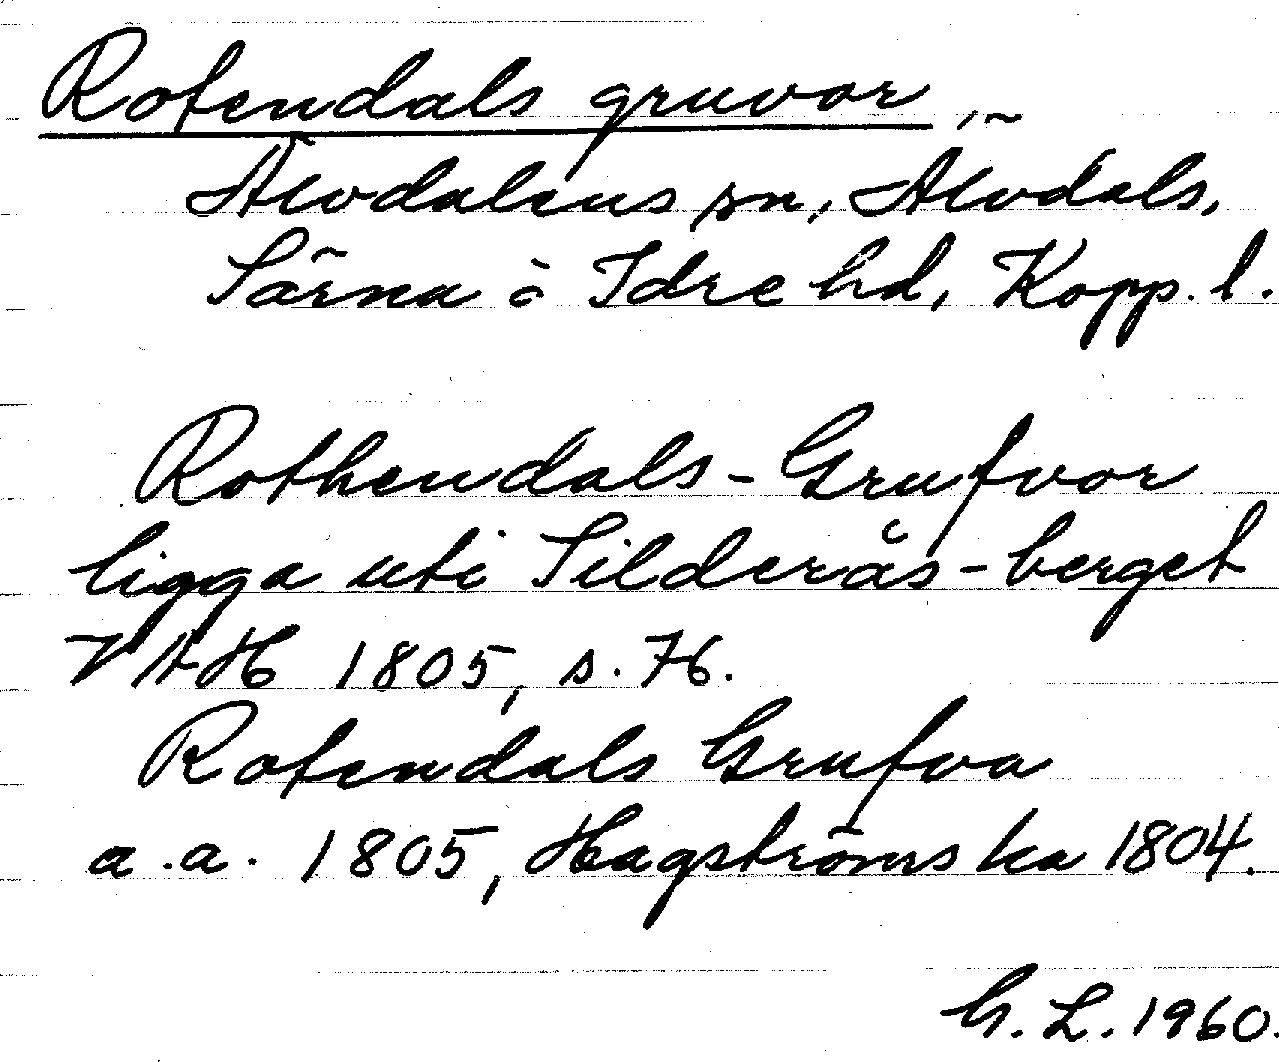 Rotendals gruvor, ~
Älvdalens sn, Älvdals,
Särna ö Idre hd, Kopp. l.
Rothendals-Grufvor
ligga uti Silderås-berget
VAH 1805, s. 76.
Rotendals Grufva
a.a. 1805, Hagströms ka 1804.
G. L. 1960.